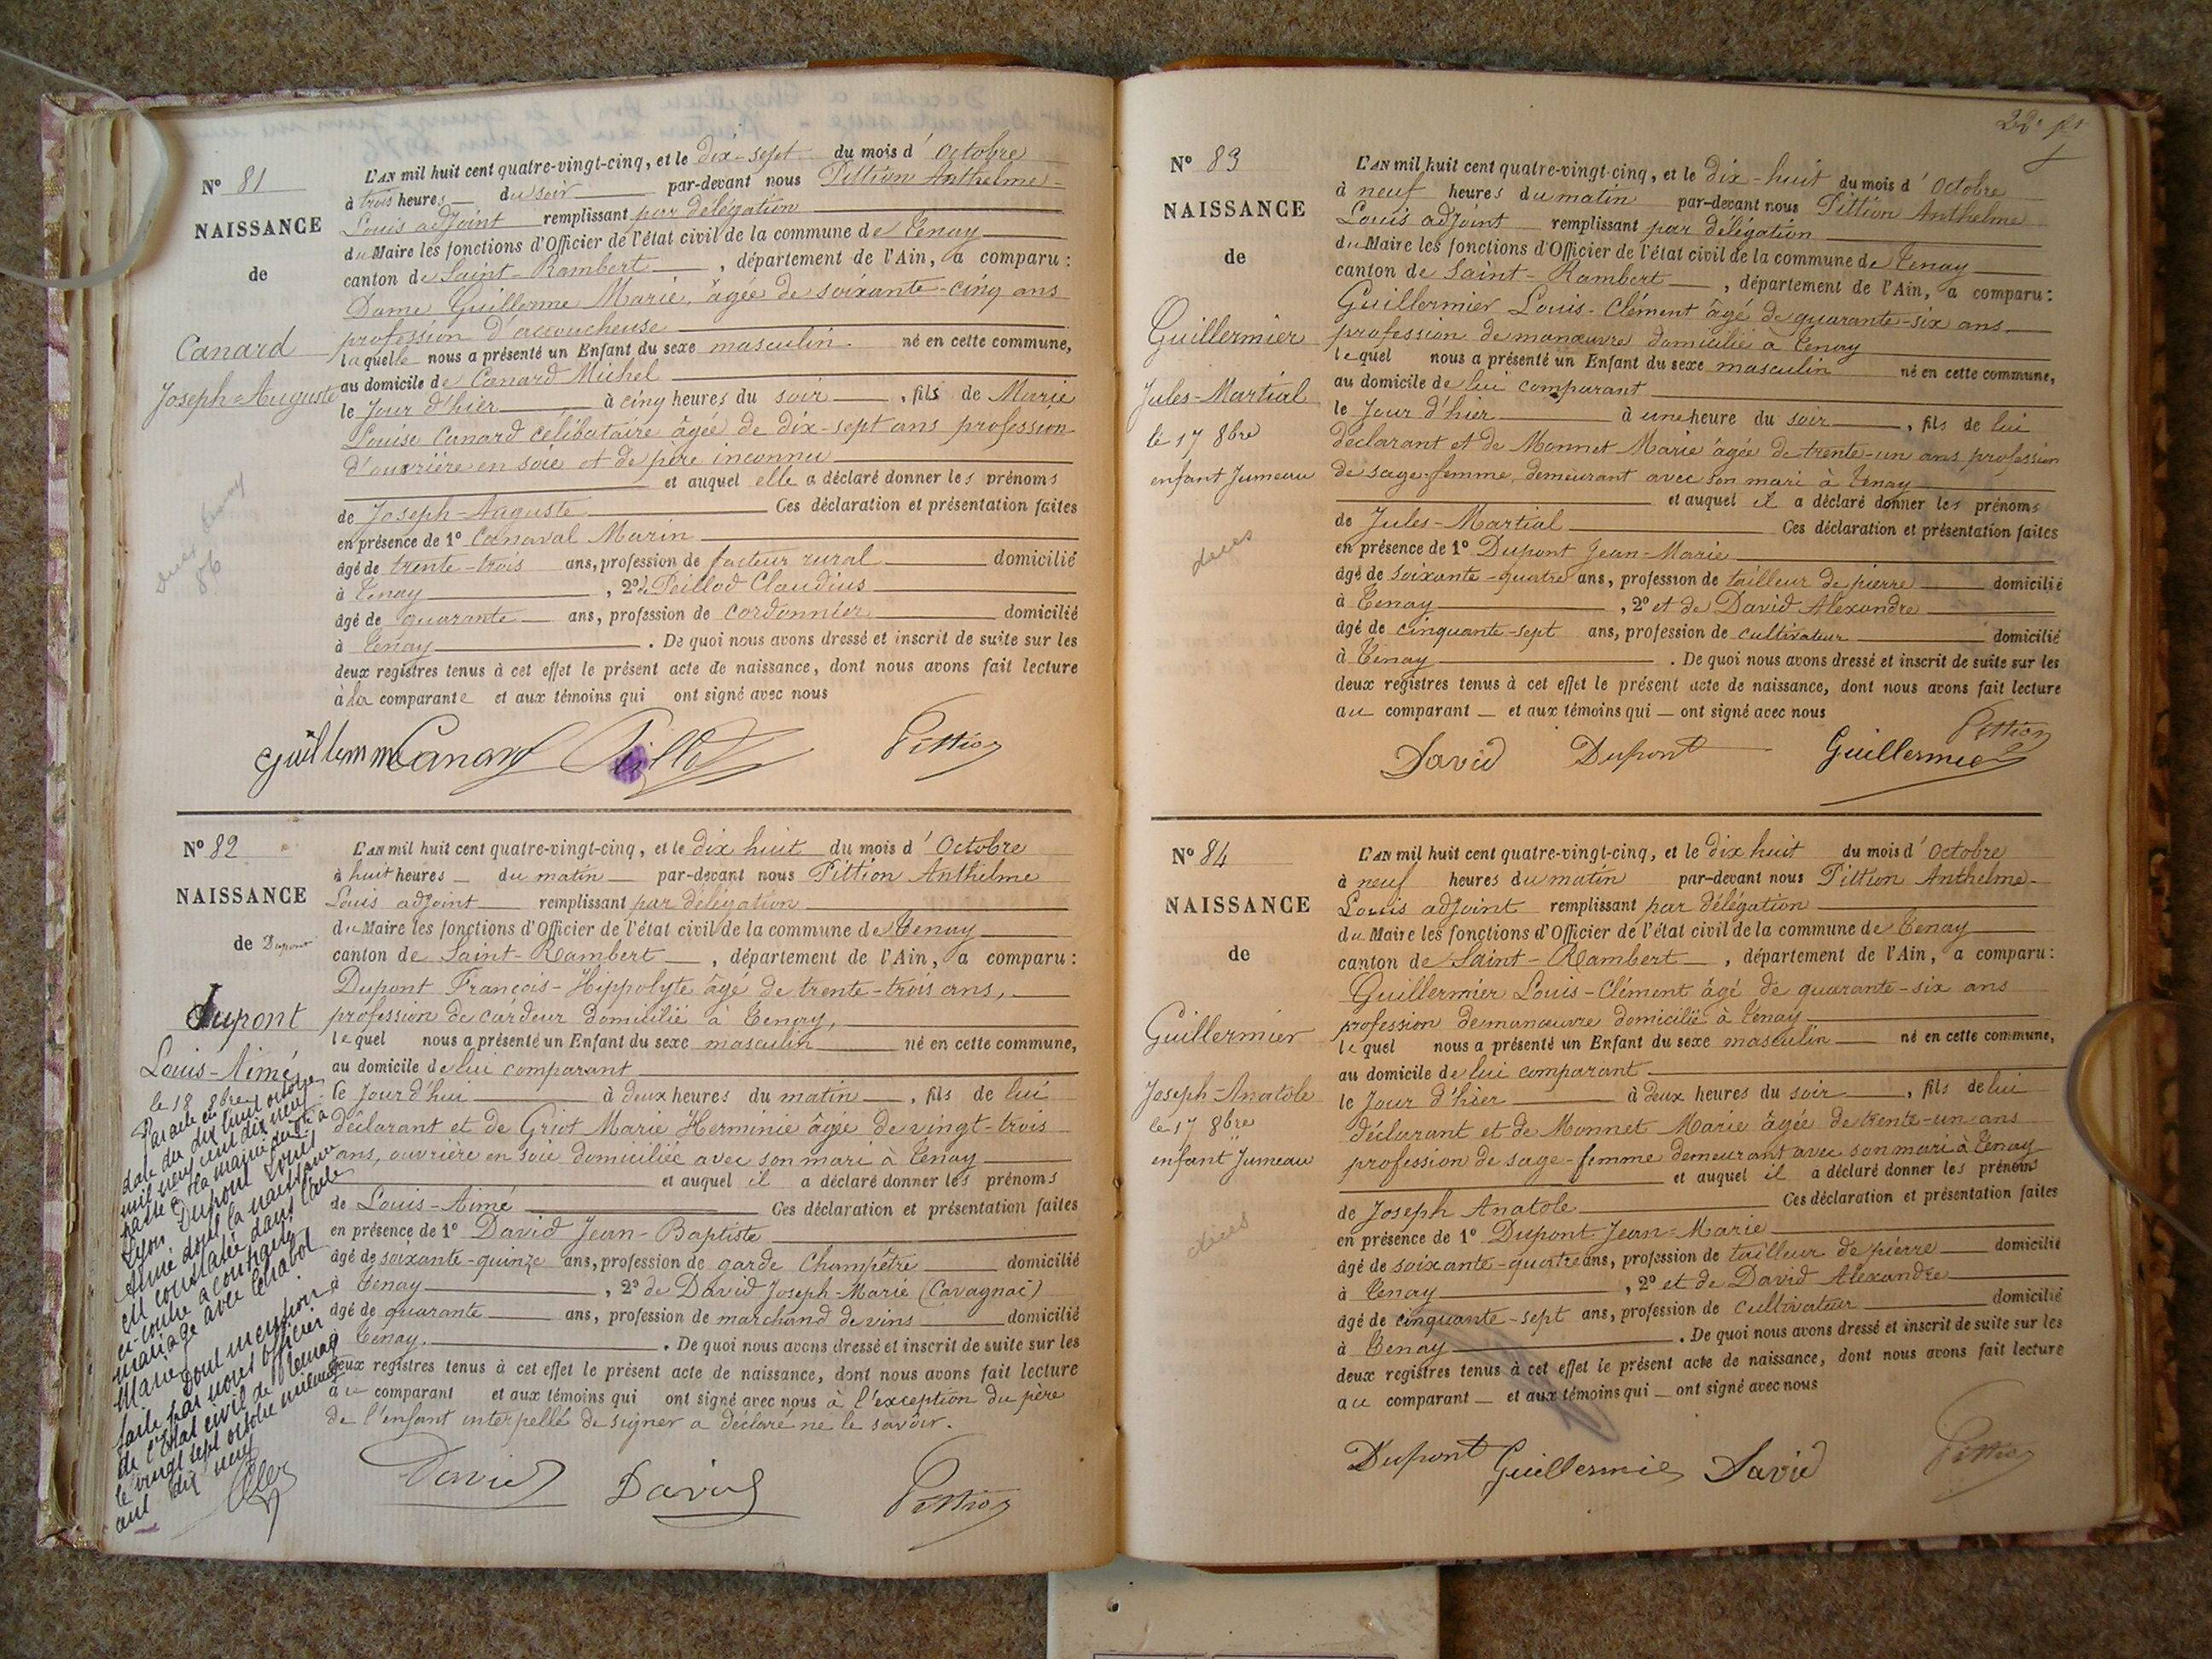 N° 81
NAISSANCE
de
Canard
Joseph-Auguste
L'AN mil huit cent quatre-vingt-cinq, et le dix-sept du mois d'Octobre
à trois heures du soir par-devant nous Pittion Anthelme-
Louis adjoint remplissant par délégation
du Maire les fonctions d'Officier de l'état civil de la commune de Tenay
canton de Saint-Rambert, département de l'Ain, a comparu :
Dame Guillerme Marie, âgée de soixante-cinq ans
profession d'accoucheuse
laquelle nous a présenté un Enfant du sexe masculin. né en cette commune,
au domicile de Canard Michel
le Jour d'hier à cinq heures du soir, fils de Marie
Louise Canard célibataire âgée de dix-sept ans profession
d'ouvrière en soie et de père inconnu
et auquel elle a déclaré donner les prénoms
de Joseph-Auguste Ces déclaration et présentation faites
en présence de 1° Canaval Marin
âgé de trente-trois ans, profession de facteur rural domicilié
à Tenay, 2° de Peillod Claudius
âgé de quarante ans, profession de cordonnier domicilié
à Tenay. De quoi nous avons dressé et inscrit de suite sur les
deux registres tenus à cet effet le présent acte de naissance, dont nous avons fait lecture
à la comparante et aux témoins qui ont signé avec nous
Pittion
N° 82
NAISSANCE
de Dupont
Dupont
Louis-Aimé
le 18 8bre
Par acte en
date du dix huit octobre
mil neuf cent dix neuf
passé à la mairie de
Lyon Dupont Louis
Aimé dont la naissance
est constatée dans l'acte
ci-contre a contracté
mariage avec Chabot
Marie
Dont mention
faite par nous officier
de l'Etat civil de
le vingt sept octobre mil neuf
cent dix neuf
L'AN mil huit cent quatre-vingt-cinq, et le dix huit du mois d'Octobre
à huit heures du matin par-devant nous Pittion Anthelme
Louis adjoint remplissant par délégation
du Maire les fonctions d'Officier de l'état civil de la commune de Tenay
canton de Saint-Rambert, département de l'Ain, a comparu :
Dupont François-Hippolyte âgé de trente-trois ans,
profession de cardeur domicilié à Tenay,
lequel nous a présenté un Enfant du sexe masculin né en cette commune,
au domicile de lui comparant
le Jour d'hui à deux heures du matin, fils de lui
déclarant et de Griot Marie Herminie âgée de vingt-trois
ans, ouvrière en soie domiciliée avec son mari à Tenay
et auquel il a déclaré donner les prénoms
de Louis-Aimé Ces déclaration et présentation faites
en présence de 1° David Jean-Baptiste
âgé de soixante-quinze ans, profession de garde Champêtre domicilié
à Tenay, 2° de David Joseph-Marie (Cavagnac)
âgé de quarante ans, profession de marchand de vins domicilié
à Tenay. De quoi nous avons dressé et inscrit de suite sur les
deux registres tenus à cet effet le présent acte de naissance, dont nous avons fait lecture
au comparant et aux témoins qui ont signé avec nous à l'exception du père
de l'enfant interpellé de signer a déclaré ne le savoir.
David David Pittion
N° 83
NAISSANCE
de
Guillermier
Jules-Martial
le 17 8bre
enfant Jumeau
décès
L'AN mil huit cent quatre-vingt-cinq, et le dix-huit du mois d'Octobre
à neuf heures du matin par-devant nous Pittion Anthelme
Louis adjoint remplissant par délégation
du Maire les fonctions d'Officier de l'état civil de la commune de Tenay
canton de Saint-Rambert, département de l'Ain, a comparu :
Guillermier Louis-Clément âgé de quarante-six ans
profession de manœuvre domicilié à Tenay
lequel nous a présenté un Enfant du sexe masculin né en cette commune,
au domicile de lui comparant
le Jour d'hier à une heure du soir, fils de lui
déclarant et de Monnet Marie âgée de trente-un ans profession
de sage-femme, demeurant avec son mari à Tenay
et auquel il a déclaré donner les prénoms
de Jules-Martial Ces déclaration et présentation faites
en présence de 1° Dupont Jean-Marie
âgé de soixante-quatre ans, profession de tailleur de pierre domicilié
à Tenay, 2° et de David Alexandre
âgé de cinquante-sept ans, profession de cultivateur domicilié
à Tenay. De quoi nous avons dressé et inscrit de suite sur les
deux registres tenus à cet effet le présent acte de naissance, dont nous avons fait lecture
au comparant et aux témoins qui ont signé avec nous
Pittion
David Dupont Guillermier
N° 84
NAISSANCE
de
Guillermier
Joseph-Anatole
le 17 8bre
enfant Jumeau
décès
L'AN mil huit cent quatre-vingt-cinq, et le dix huit du mois d'Octobre
à neuf heures du matin par-devant nous Pittion Anthelme-
Louis adjoint remplissant par délégation
du Maire les fonctions d'Officier de l'état civil de la commune de Tenay
canton de Saint-Rambert, département de l'Ain, a comparu :
Guillermier Louis-Clément âgé de quarante-six ans
profession de manœuvre domicilié à Tenay
lequel nous a présenté un Enfant du sexe masculin né en cette commune,
au domicile de lui comparant
le Jour d'hier à deux heures du soir, fils de lui
déclarant et de Monnet Marie âgée de trente-un ans
profession de sage-femme demeurant avec son mari à Tenay
et auquel il a déclaré donner les prénoms
de Joseph Anatole Ces déclaration et présentation faites
en présence de 1° Dupont Jean-Marie
âgé de soixante-quatre ans, profession de tailleur de pierre domicilié
à Tenay, 2° et de David Alexandre
âgé de cinquante-sept ans, profession de cultivateur domicilié
à Tenay. De quoi nous avons dressé et inscrit de suite sur les
deux registres tenus à cet effet le présent acte de naissance, dont nous avons fait lecture
au comparant et aux témoins qui ont signé avec nous
Dupont Guillermier David Pittion